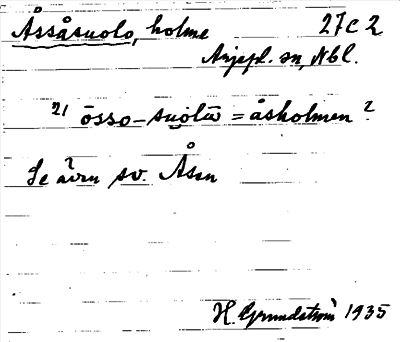 Åssåsuolo, holme 27C2
Arjepl. sn, Nbl.
21 ōsso-suo̯lūv = åsholmen ?
Se även sv. Åsen
H. Grundström 1935